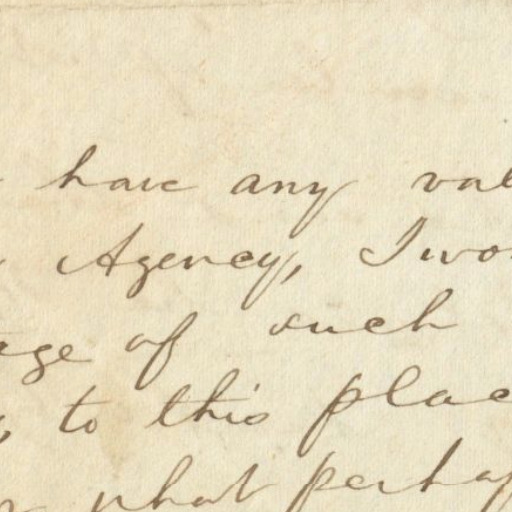 have any val
Agency, I wo
age of such
to this plac
what perhap